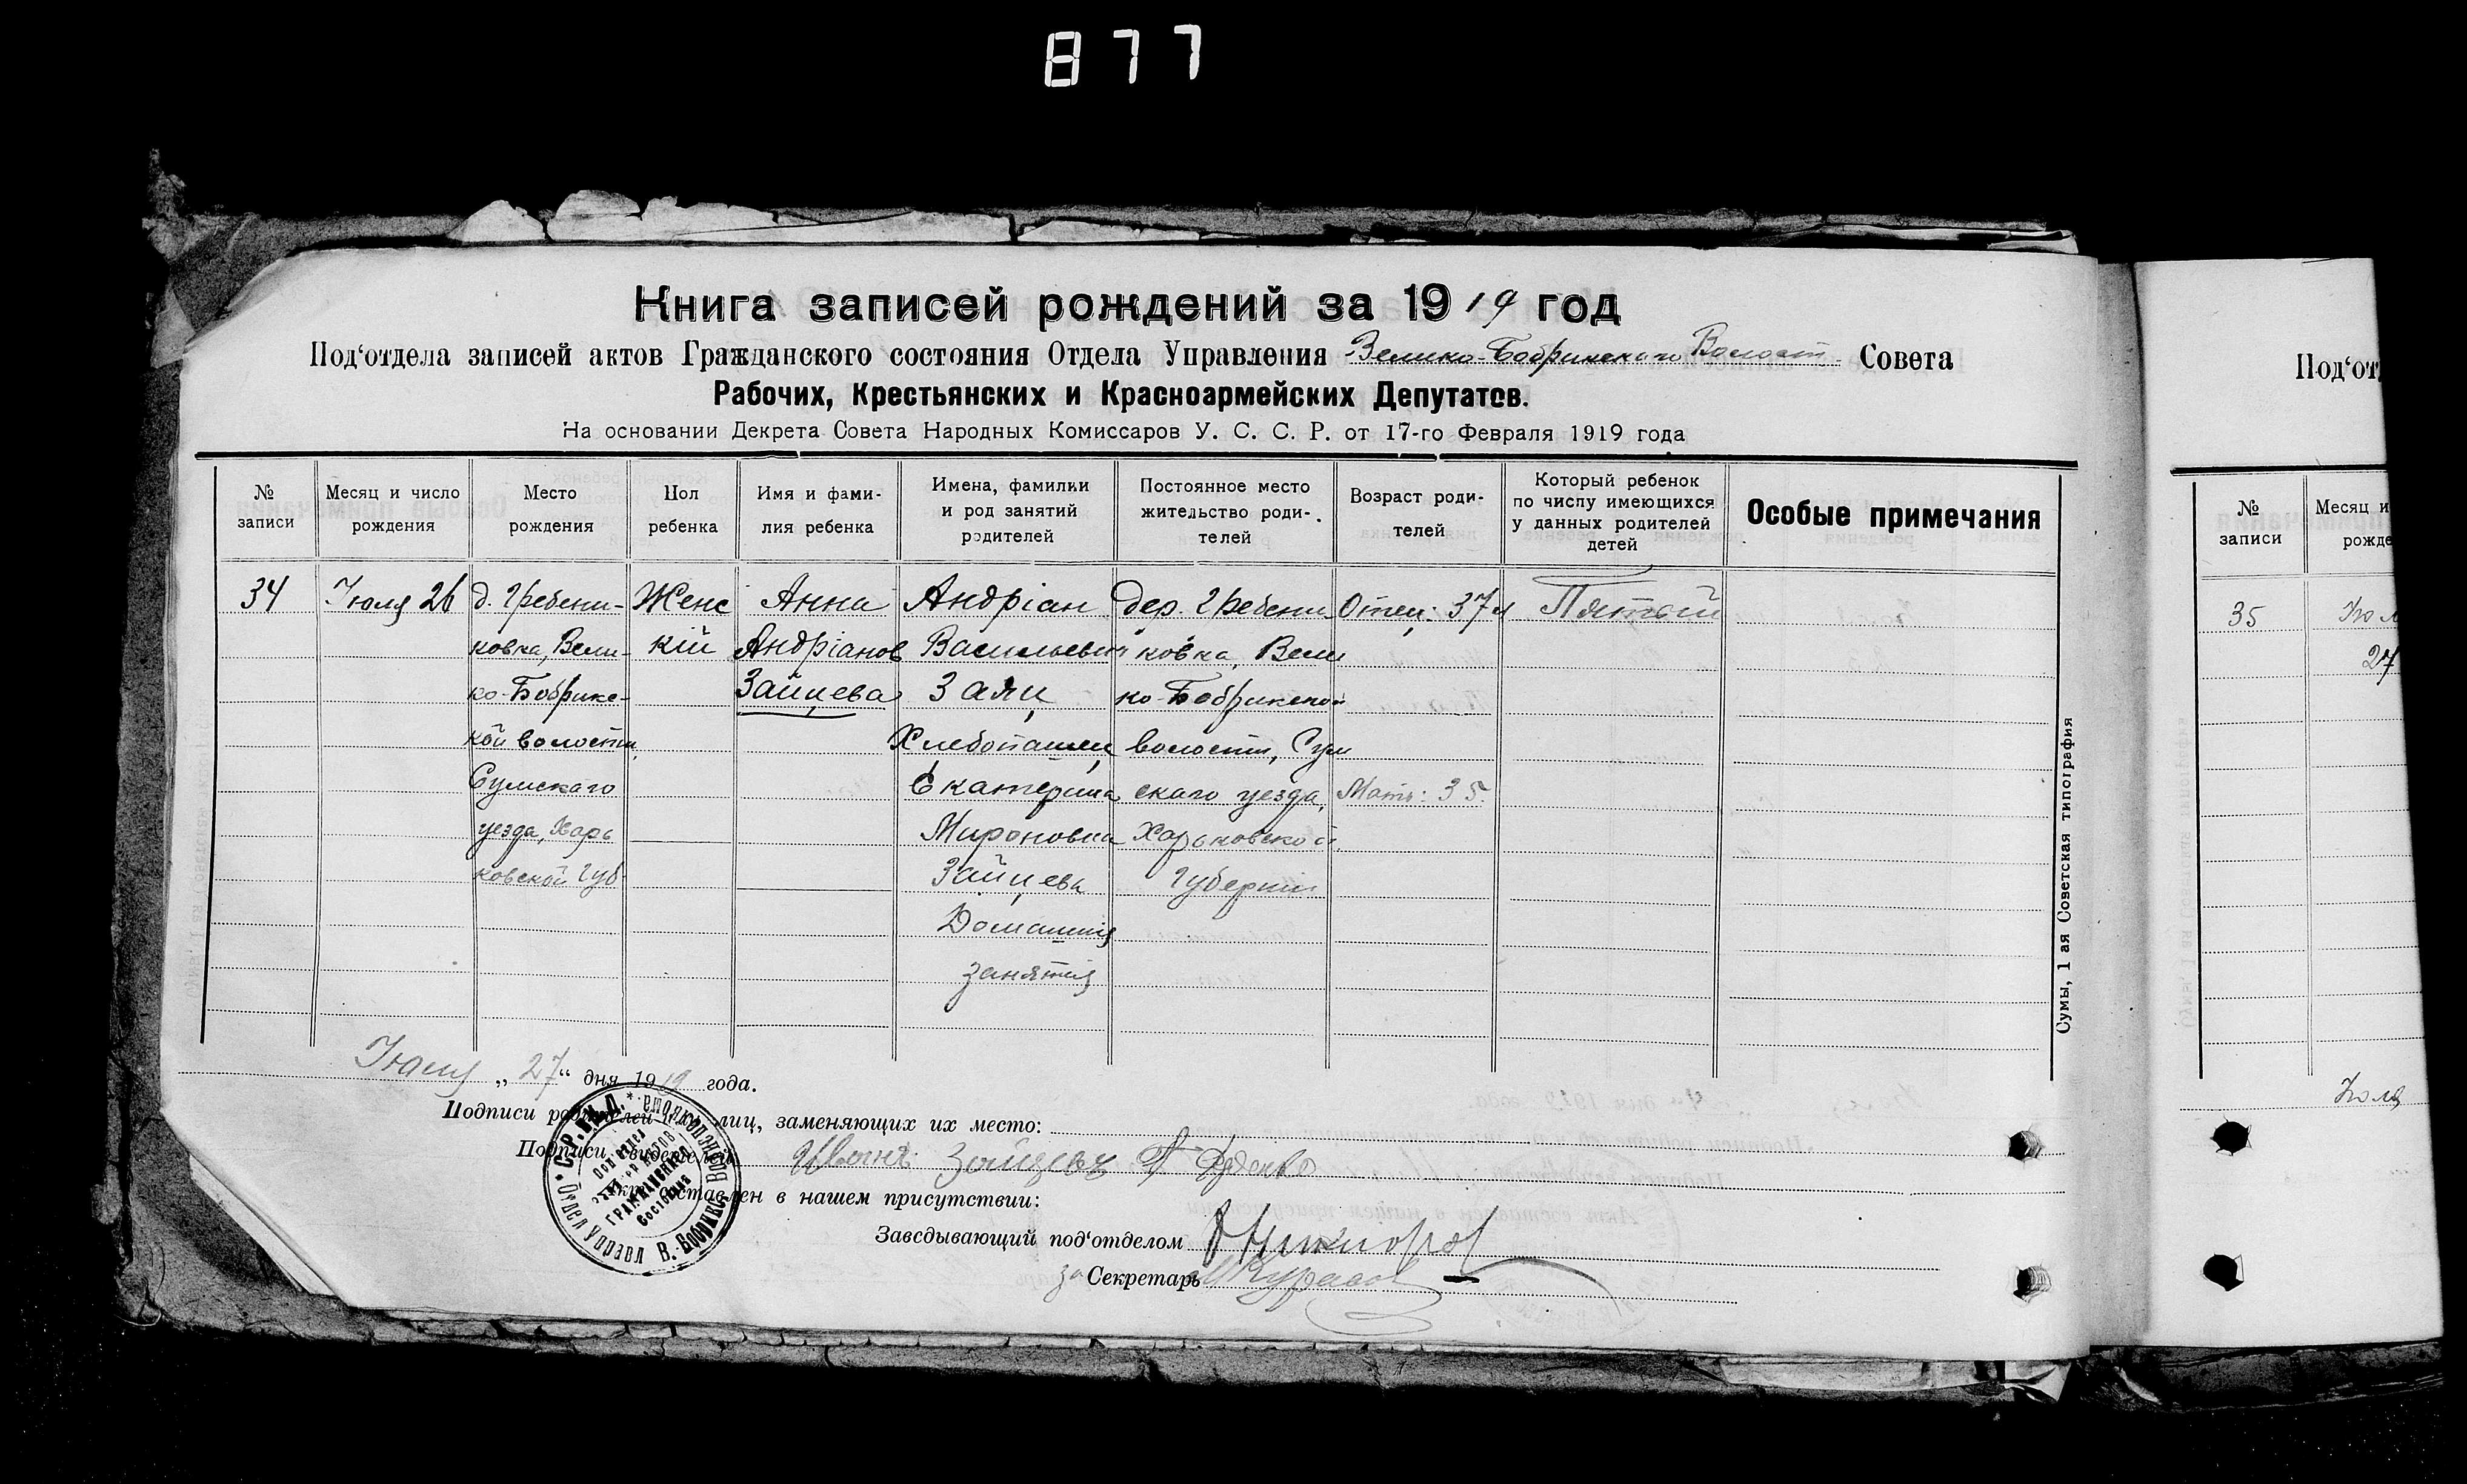 877
Книга записей рождений за 1919 год
Под‘отдела записей актов Гражданского состояния Отдела Управления Велико-Бобринского Волост. Совета
Рабочих, Крестьянских и Красноармейских Депутатов.
На основании Декрета Совета Народных Комиссаров У. С. С. Р. от 17-го Февраля 1919 года
№ записи
Месяц и число рождения
Место рождения
Пол ребенка
Имя и фами- лия ребенка
Имена, фамилки и род занятий родителей
Постоянное место жительство роди- телей
Возраст роди- телей
Который ребенок по числу имеющихся у данных родителей детей
Особые примечания
34
Іюля 26
д. Гребени-
ковка, Вели-
ко-Бобринс-
кой волости,
Сумскаго
уезда, Харь
ковской Губ
Женс
кій
Анна
Андріанов
Зайцева
Андріан
Васильевич
Заяц
Хлебопашец
Екатерина
Мироновна
Зайцева
Домашния
занятия
Дер. Гребени
ковка, Вели
ко-Бобринской
волости, Сум
скаго уезда,
Харьковской
Губернии
Отец: 37 л
Мать: 35.
Пятый
Сумы, 1 ая Советская типография
Іюля „27“ дня 1919 года.
Подписи родителей или лиц, заменяющих их место:
Подписи свидетелей Иван Зайцевъ
Акт составлен в нашем присутствии:
Заведывающий под‘отделом
за Секретарь
Отдел Управл В.-Бобринс. Волисполкома
Под‘от
№ записи
Месяц и
рожде
35
Июл
27
Июля